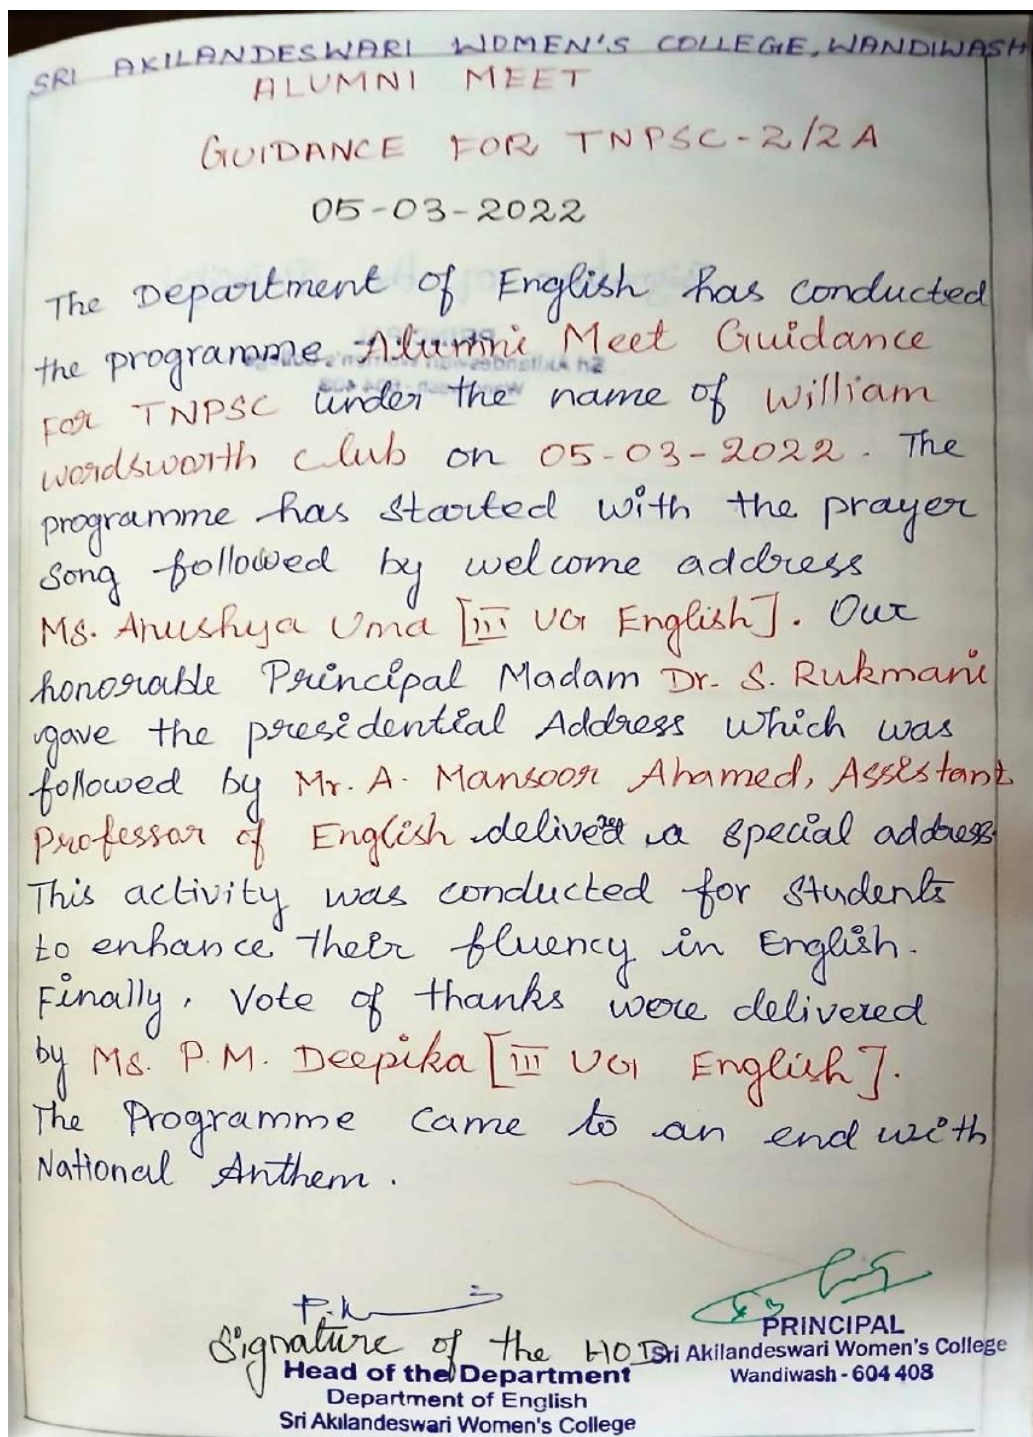 SRI AKILANDESWARI WOMEN'S COLLEGE, WANDIWASH
ALUMNI MEET
GUIDANCE FOR TNPSC-2/2A
05-03-2022
The Department of English has conducted
the programme Alumni Meet Guidance
For TNPSC under the name of William
wordsworth club on 05-03-2022. The
programme has started with the prayer
song followed by welcome address
Ms. Anushya Uma [III UG English]. Our
honorable Principal Madam Dr. S. Rukmani
gave the presidential Address which was
followed by Mr. A. Mansoor Ahamed, Assistant
Professor of English delivered a special address.
This activity was conducted for students
to enhance their fluency in English.
Finally, Vote of thanks were delivered
by Ms. P.M. Deepika [III UG English].
The Programme came to an end with
National Anthem.
Signature of the HOD
Head of the Department
Department of English
Sri Akilandeswari Women's College
PRINCIPAL
Sri Akilandeswari Women's College
Wandiwash - 604 408